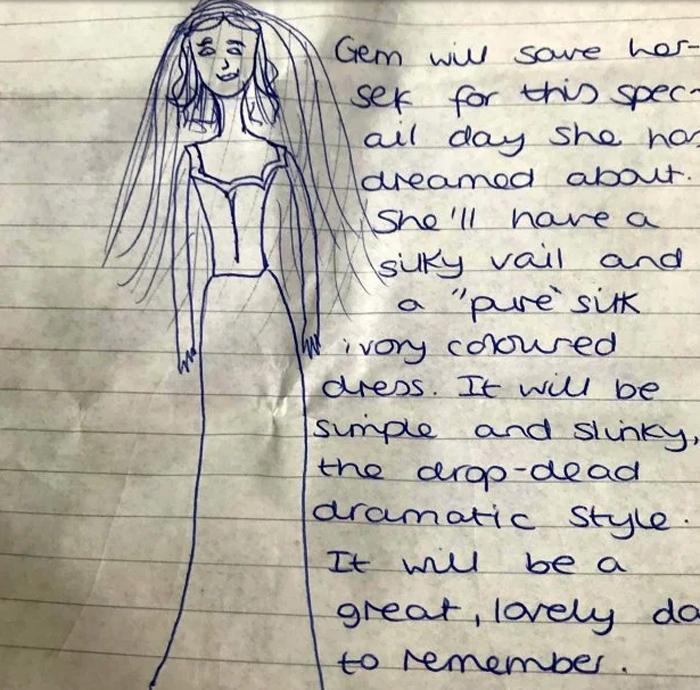 Gem will save her-
self for this spec-
ail day she has
dreamed about.
She'll have a
silky vail and
a "pure" silk
ivory coloured
dress. It will be
simple and slinky,
the drop-dead
dramatic style.
It will be a
great, lovely da
to remember.